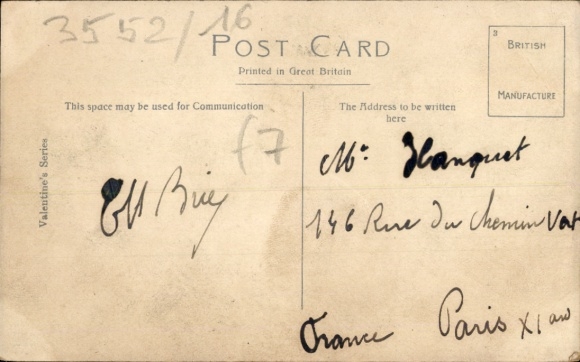 3552/16
POST CARD
Printed in Great Britain
3
BRITISH
MANUFACTURE
This space may be used for Communication
The Address to be written
here
Valentine's Series
f7
Mr. Hanquet
146 Rue du Chemin Vert
France Paris XI